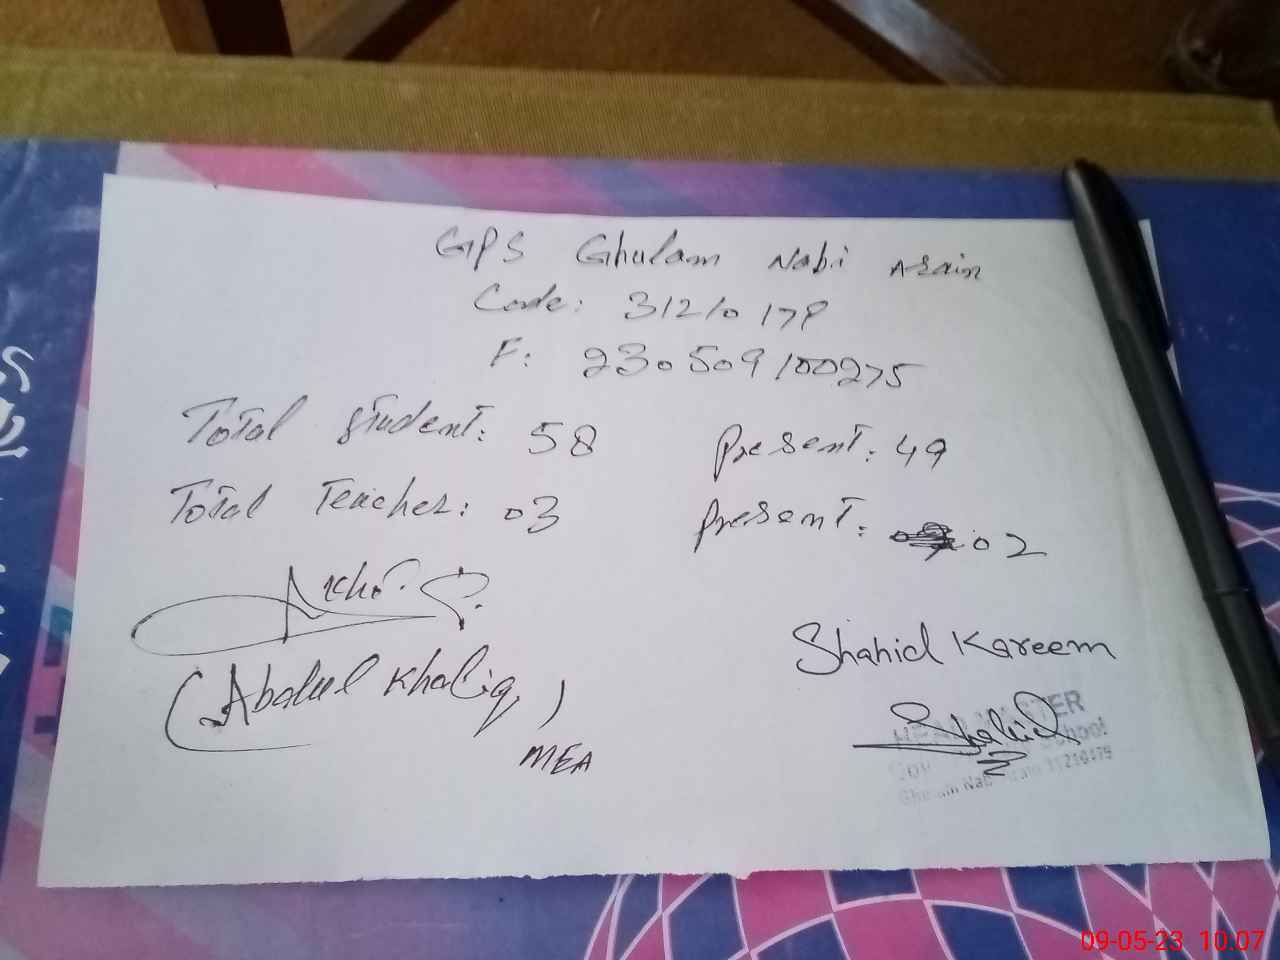 GPS Ghulam Nabi Arain
Code: 31210179
F: 230509100275
Total student: 58 Present: 49
Total Teacher: 03 Present: 02
(Abdul Khaliq)
MEA
Shahid Kareem
Shahid
HEAD MASTER
School
Ghulam Nabi
09-05-23 10.07